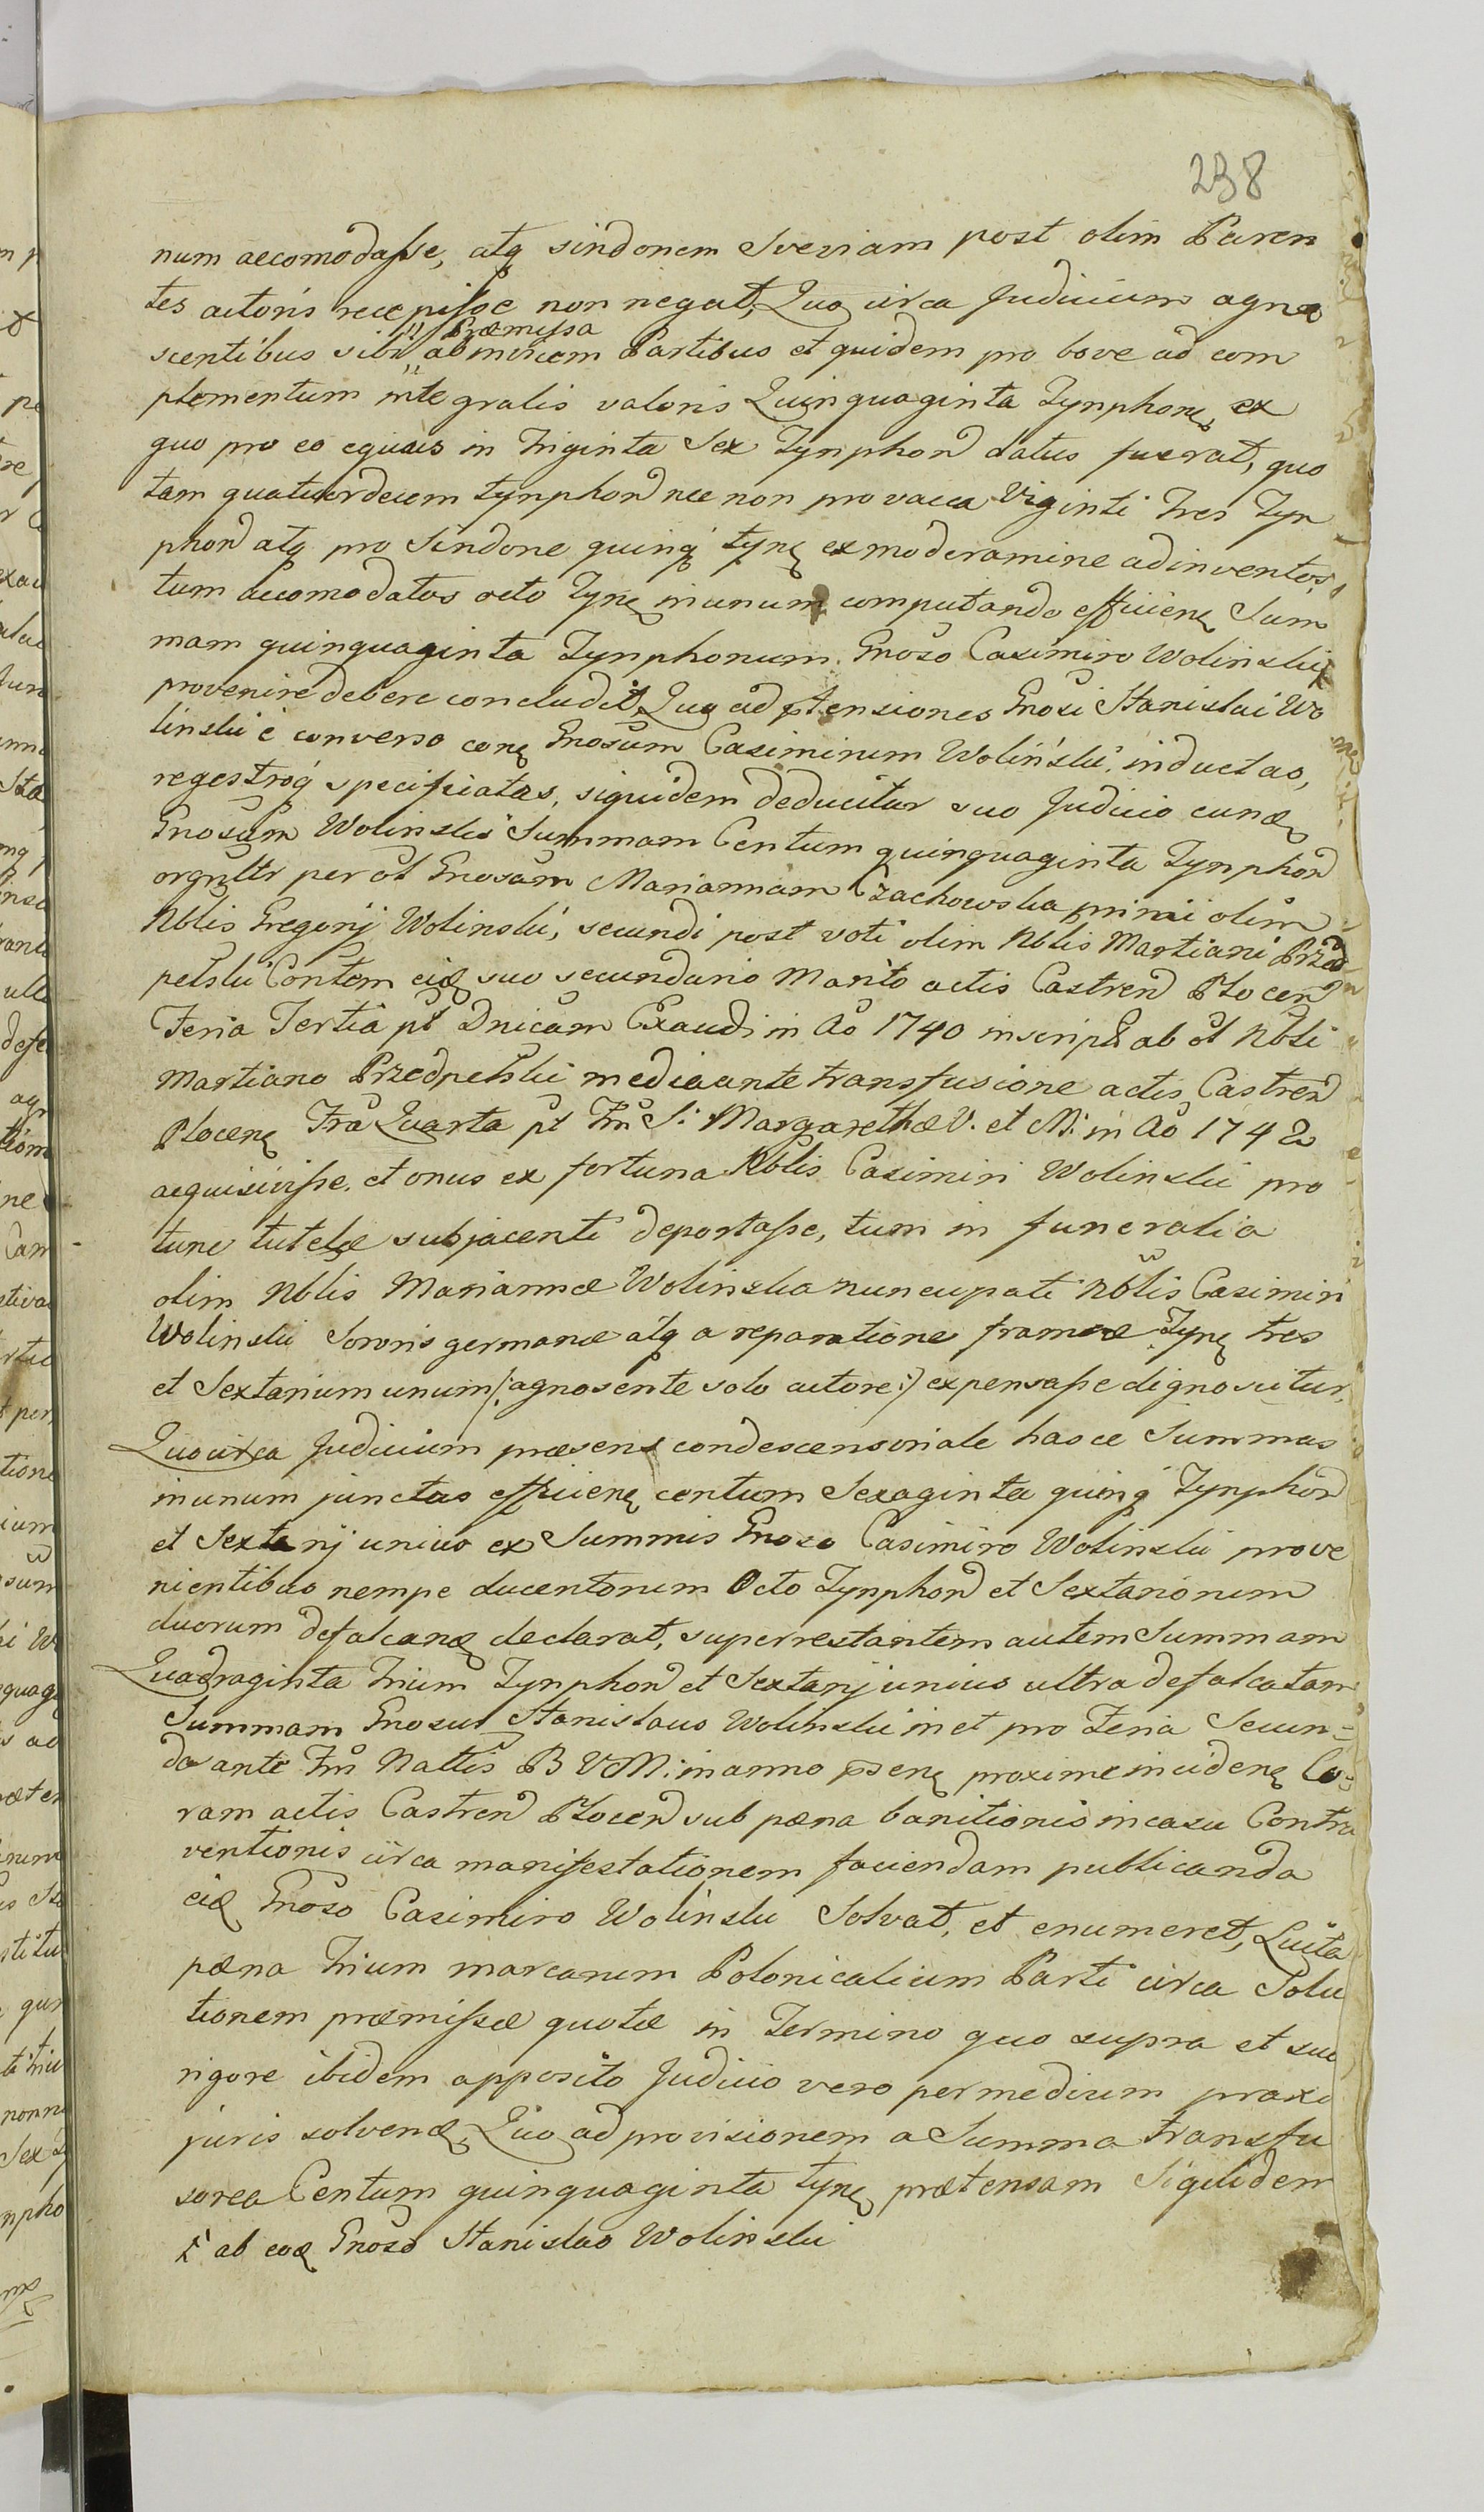 238
num accomodasse, atq sindonem Sveviam post olim Paren
tes actoris recepisse non negat, Quo circa Judicium agno
præmissa
scentibus sibi ad invicem Partibus et quidem pro bove ad com
plementum integralis valoris Quinquaginta Tynphonę ex
quo pro eo equus in Triginta Sex Tynphon datus fuerat, quo
tam quatuordecem tynphon nec non pro vacca Viginti Tres Tyn
phon atq pro Sindone quinq tynę ex moderamine adinventos,
tum accomodatos octo Tynę in unum computando efficienę Sum
mam quinquaginta Tynphonum. Gnoso Casimiro Wolinskij
provenire debere concludit, Quo ad ptensiones Gnosi Stanislai Wo
linskii è converso conę Gnosum Casimirum Wolinski, inductas,
regestroq specificatas, siquidem deducitur suo Judicio eundę
Gnosum Wolinski Summam Centum quinquaginta Tynphon
orgnltr per ol Gnosam Mariannam Czachowska primi olim
Nblis Gregorij Wolinski, secundi post voti olim Nblis Martiani Przed
pełski Contem eidę suo secundario Marito actis Castren Plocen
Feria Tertia pt Dnicam Exaudi in Ao 1740 inscript ab ol Nbli
Martiano Przedpełski mediaante transfusione actis Castren
Plocenę Fra Quarta pt Fm S. Margarethæ V. et M. in Ao 1742
acquisivisse, et onus ex fortuna Nblis Casimiri Wolinski pro
tunc tutelæ subjacenti deportasse, tum in funeralia
olim Nblis Mariannæ Wolinska nuncupati Nblis Casimiri
Wolinski Sororis germanæ atq a reparatione frameæ Tynę tres
et Sextarium unum /: agnosente solo actore :/ expensasse dignoscitur.
Quocirca Judicium præsens condescensoriale hasce Summas
in unum junctas efficienę centum Sexaginta quinq Tynphon
et Sextarij unius ex Summis Gnoso Casimiro Wolinski prove
nientibus nempe ducentorum Octo Tynphon et Sextariorum
duorum defalcandę declarat, superrestantem autem Summam
Quadraginta Trium Tynphon et Sextarij unius ultra defalcatam
Summam Gnosus Stanislaus Wolinski in et pro Feria Secun=
da ante Fm Nattis B V M: in anno psenę proxime incidenę Co=
ram actis Castren Plocen sub pæna banitionis in casu Contra
ventionis circa manifestationem faciendam publicanda
eidę Gnoso Casimiro Wolinski Solvat, et enumeret, Luita
pæna Trium marcarum Polonicalium Parti circa Solu
tionem præmissæ quotæ in Termino quo supra et suo
rigore ibidem apposito Judicio vero per medium praxi
juris solvendę, Quo ad provisionem a Summa transfu
sorea Centum quinquaginta tynę prætensam Siquidem
ab eodę Gnoso Stanislao Wolinski